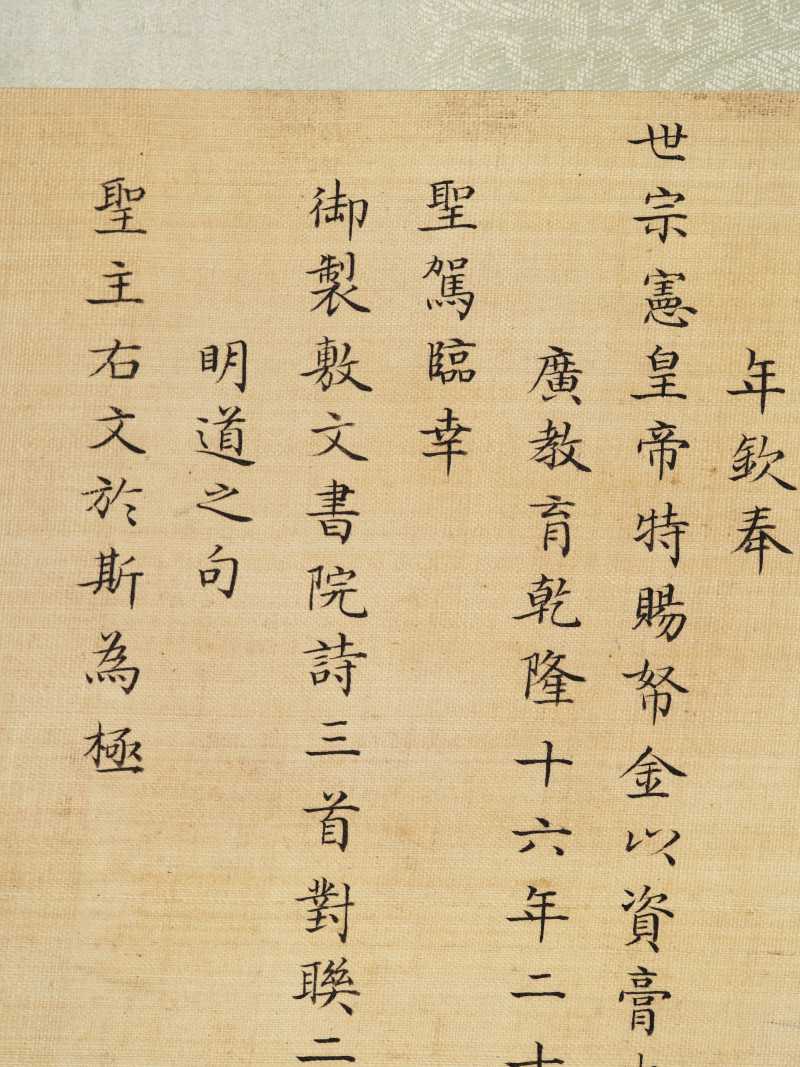 年欽奉
世宗憲皇帝特賜帑金以資膏
廣教育乾隆十六年二十
聖駕臨幸
御製敷文書院詩三首對聯二
明道之句
聖主右文於斯為極